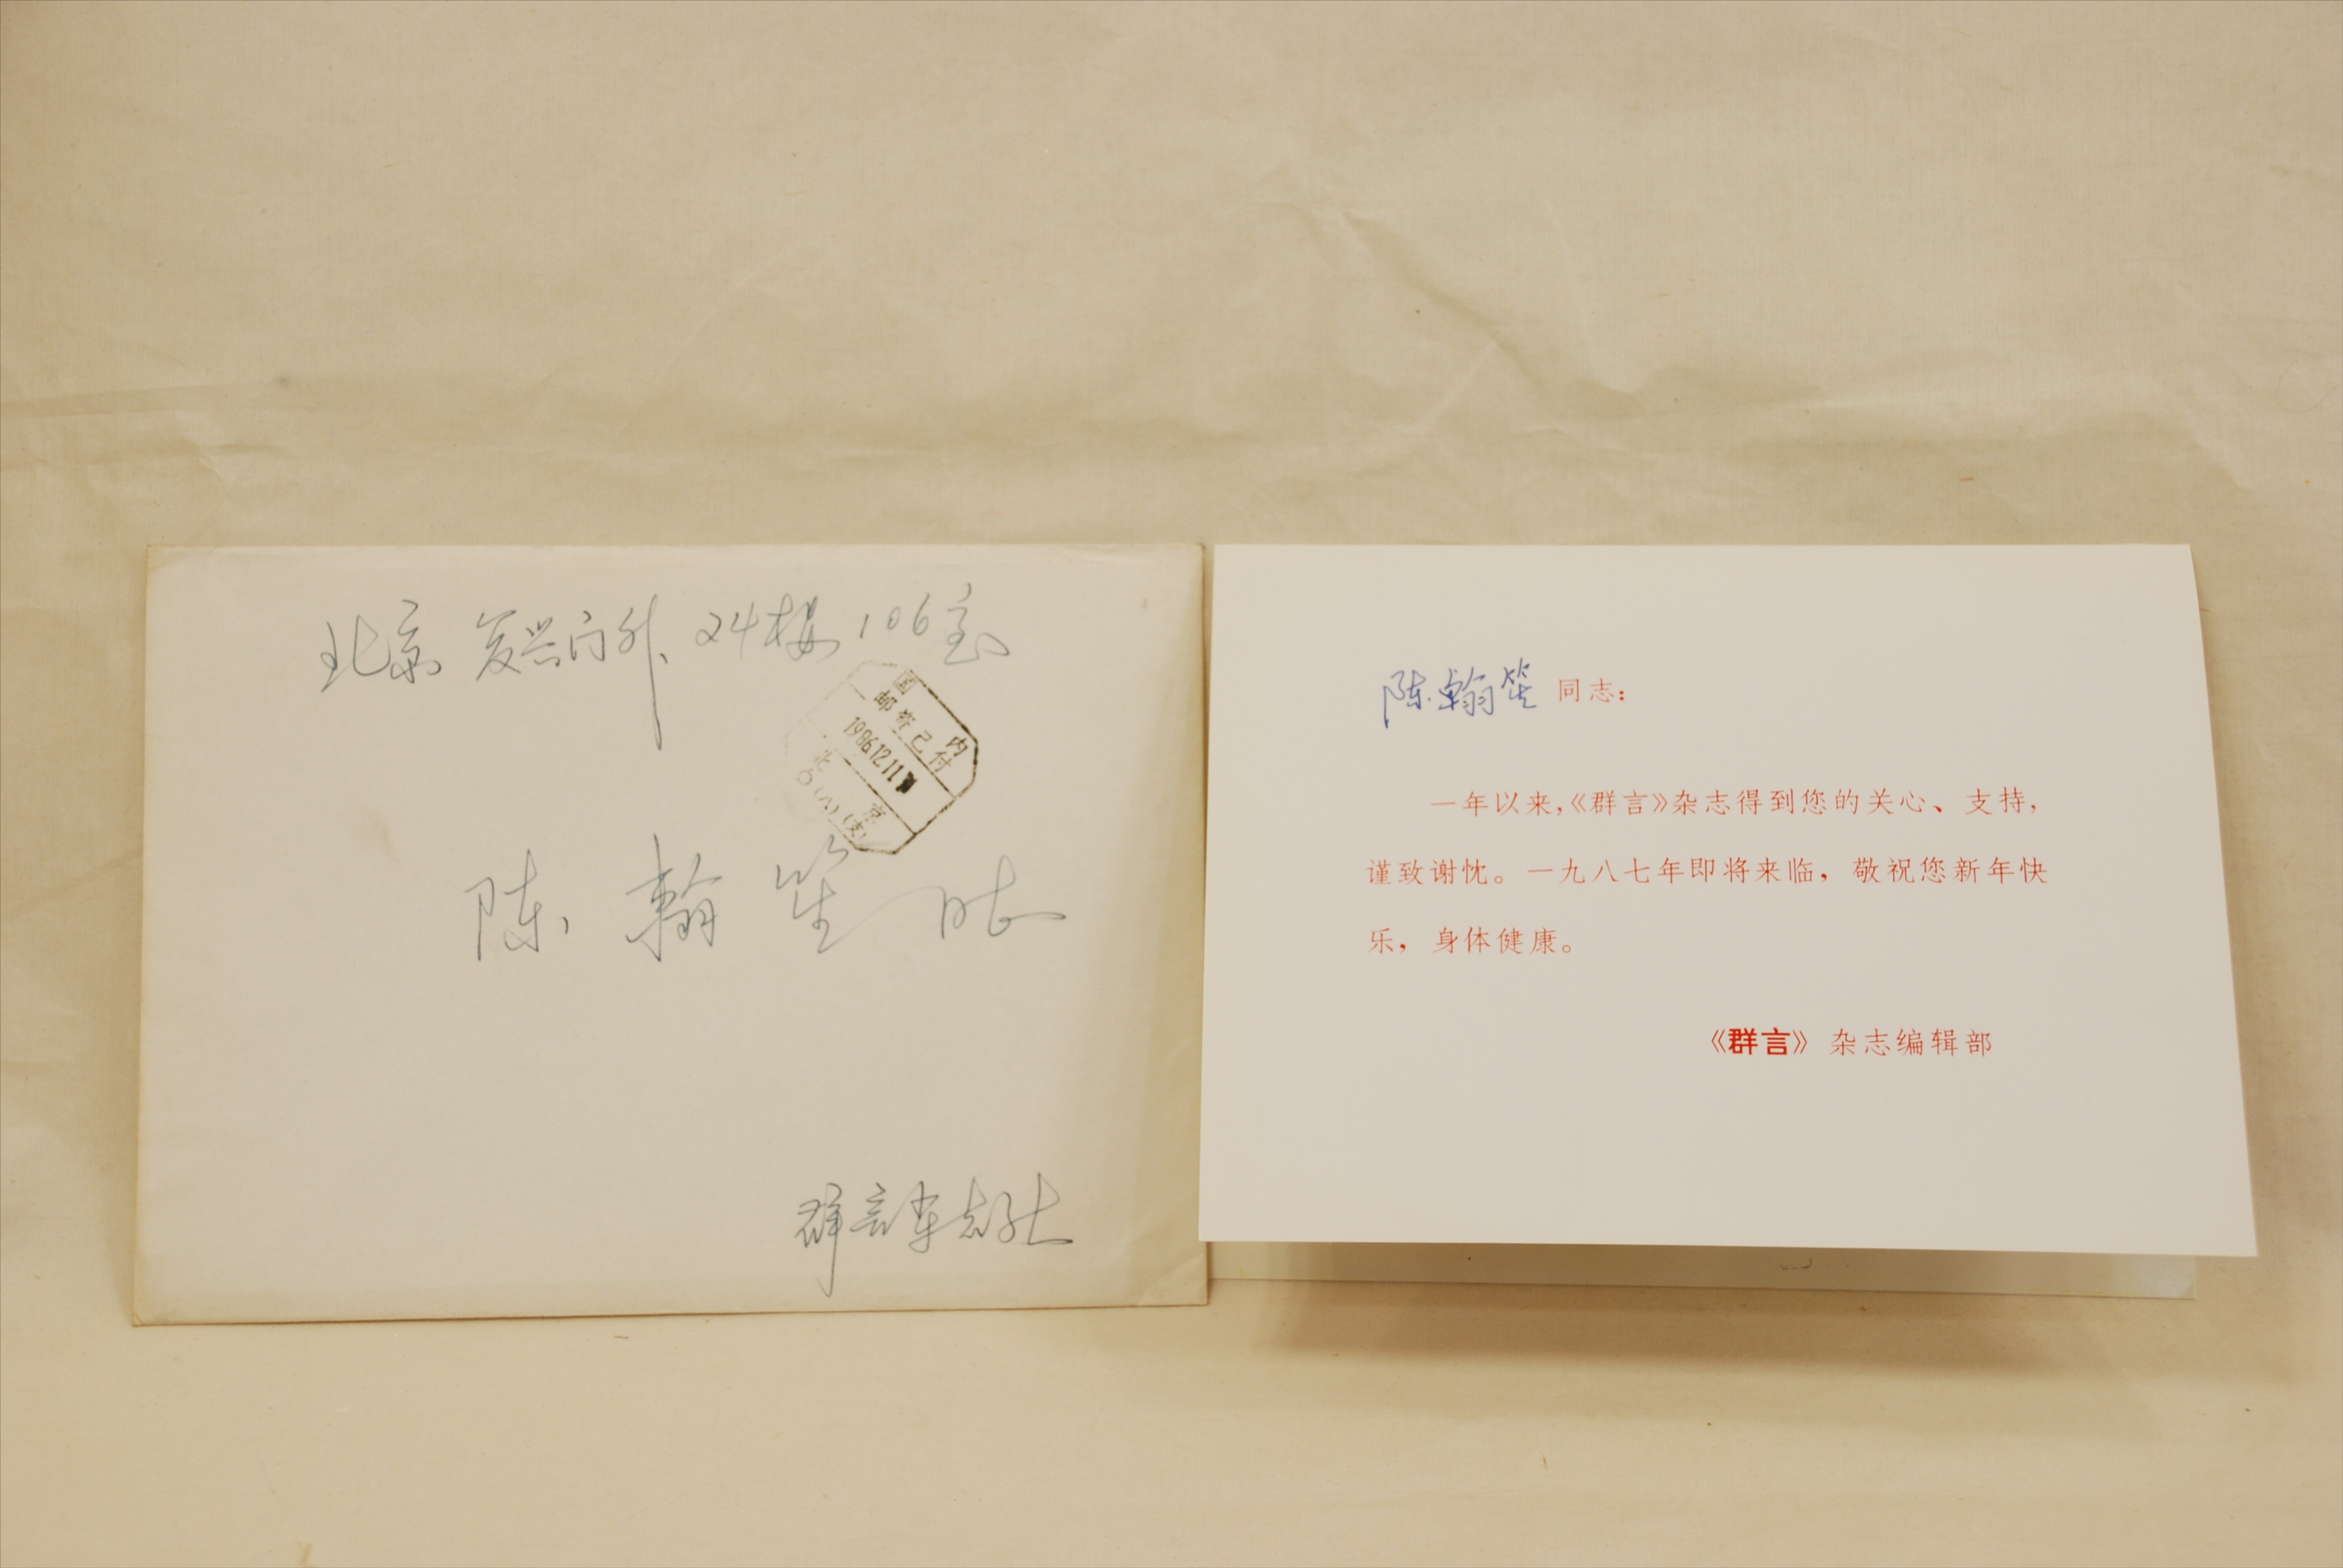 北京 复兴门外 24楼 106室
国内
邮资已付
1986.12.11
北京
(支)
陈翰笙
群言杂志社
陈翰笙 同志:
一年以来,《群言》杂志得到您的关心、支持,
谨致谢忱。一九八七年即将来临,敬祝您新年快
乐,身体健康。
《群言》杂志编辑部